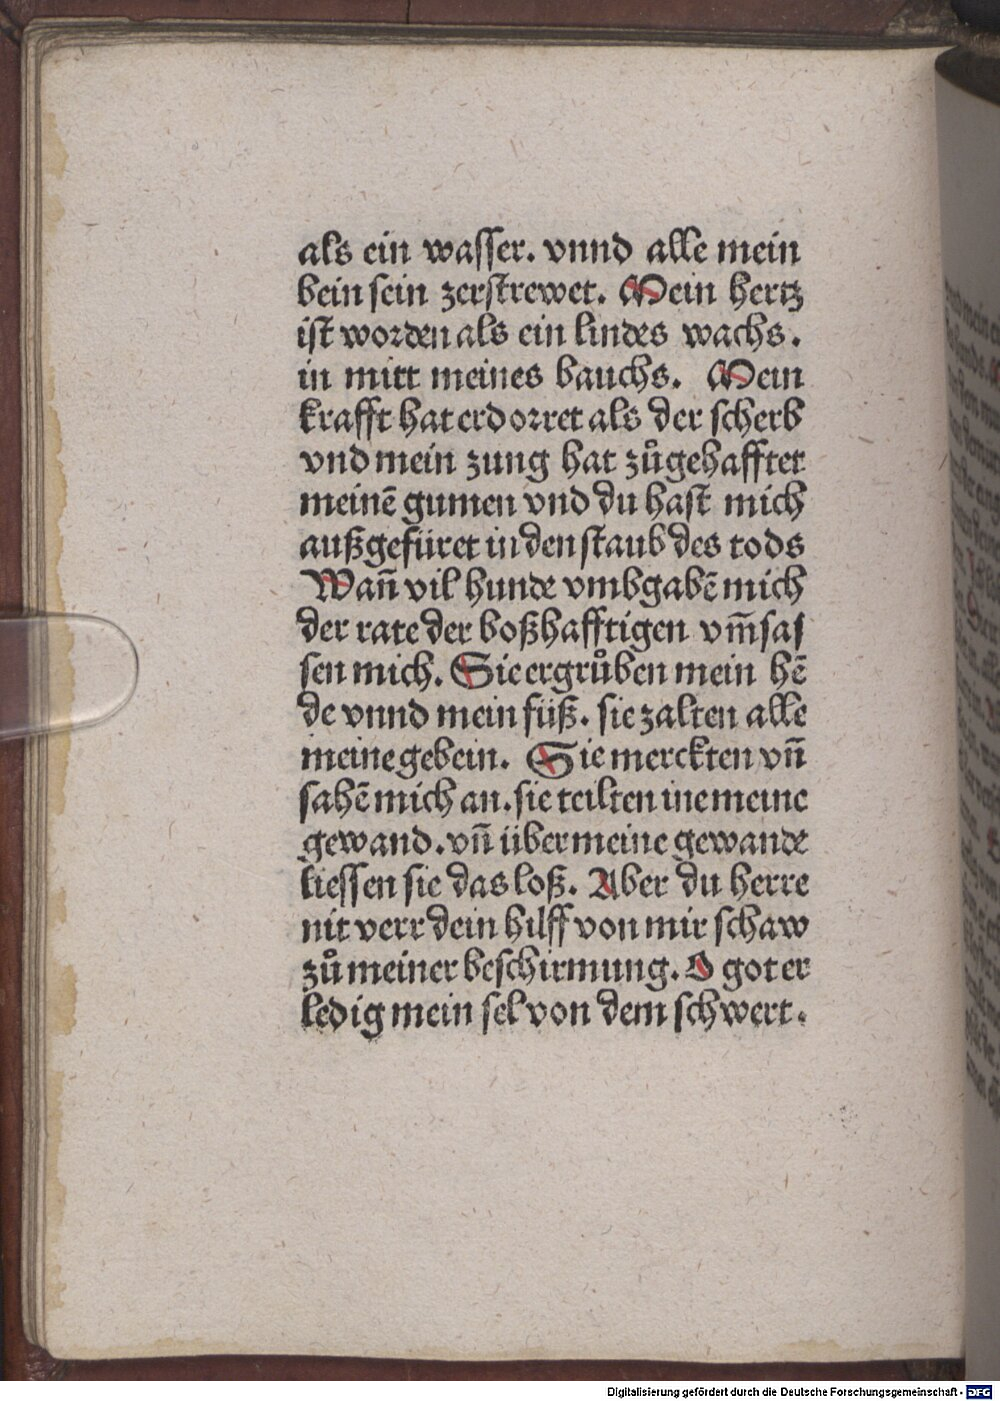 als ein wasser. vnnd alle mein
bein sein zerstrewet. Mein hertz
ist worden als ein lindes wachs.
in mitt meines bauchs. Mein
krafft hat erdorret als der scherb
vnd mein zung hat zůgehafftet
meinē gumen vnd du hast mich
außgefüret in den staub des tods
Wañ vil hunde vmbgabē mich
der rate der boßhafftigen vm̄sas
sen mich. Sie ergrůben mein hē
de vnnd mein füß. sie zalten alle
meine gebein. Sie merckten vñ
sahē mich an. sie teilten ine meine
gewand. vñ über meine gewande
liessen sie das loß. Aber du herre
nit verr dein hilff von mir schaw
zů meiner beschirmung. O got er
ledig mein sel von dem schwert.
Digitalisierung gefördert durch die Deutsche Forschungsgemeinschaft - DFG